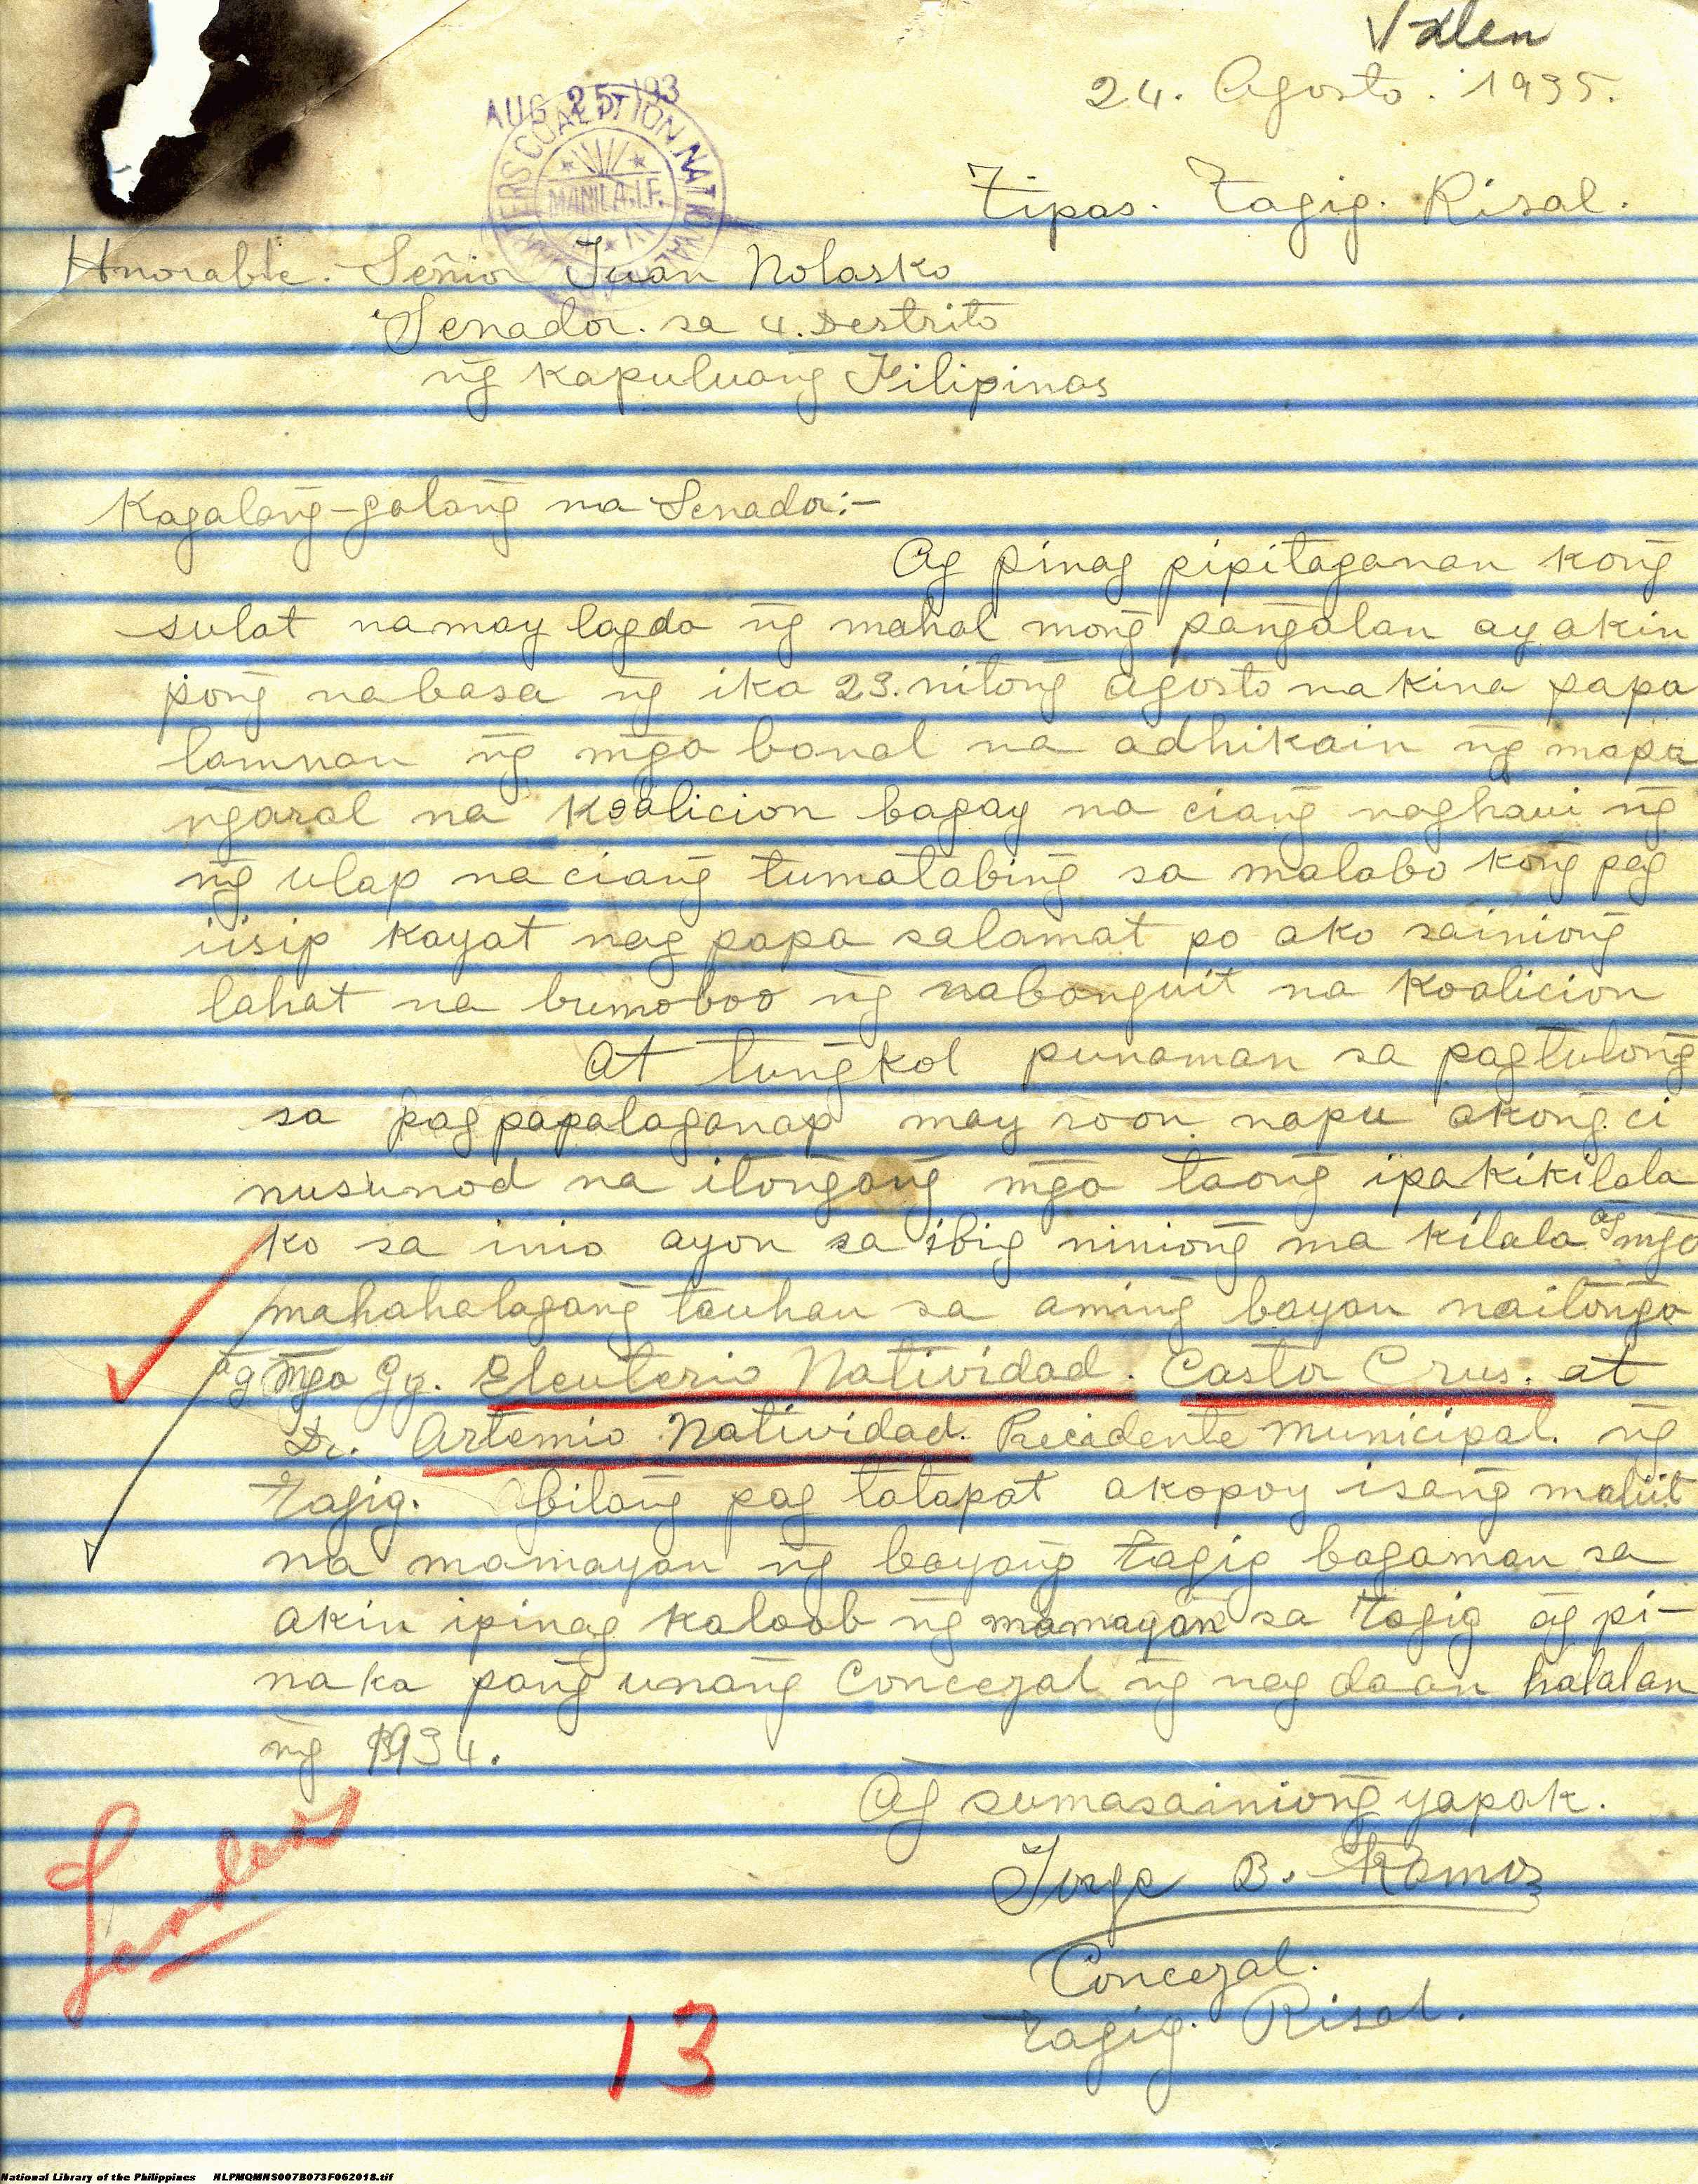 Valen
24. Agosto. 1935.
AUG 25 193
COALITION NATIONAL
MANILA, I.F.
Tipas. Tagig. Risal.
Hnorable. Señior Juan Nolasko
Senador. sa 4. Destrito
ng Kapuluang Filipinas
Kagalang-galang na Senador:-
Ag pinag pipitaganan kong
sulat namay lagda ng mahal mong pangalan ay akin
pong nabasa ng ika 23. nitong Agosto na kina papa
lamnan ng mga banal na adhikain ng mapa
ngaral na Koalicion bagay na ciang naghawi ng
ng ulap na ciang tumatabing sa malabo kong pag
iisip kayat nag papa salamat po ako sainiong
lahat na bumoboo ng mabanguit na Koalicion
At tungkol punaman sa pagtulong
sa pagpapalaganap may roon napu akong ci
nusunod na itongang mga taong ipakikilala
ko sa inio ayon sa ibig niniong ma kilala ag mga
mahahalagang tauhan sa aming bayan naitonga
ag mga Gg. Eleuterio Natividad. Castor Crus. at
Dr. Artemio Natividad. Precidente Municipal. ng
Tagig. bilang pag tatapat akopoy isang maliit
na mamayan ng bayang Tagig bagaman sa
akin ipinag kaloob ng mamayan sa Tagig ag pi-
naka pang unang Concezal ng nag daan halalan
ng 1934.
Ag sumasainiong yapak.
Jorge B. Ramos
Concezal.
Tagig. Risal.
13
National Library of the Philippines NLPMQMNS007B073F062018.tif